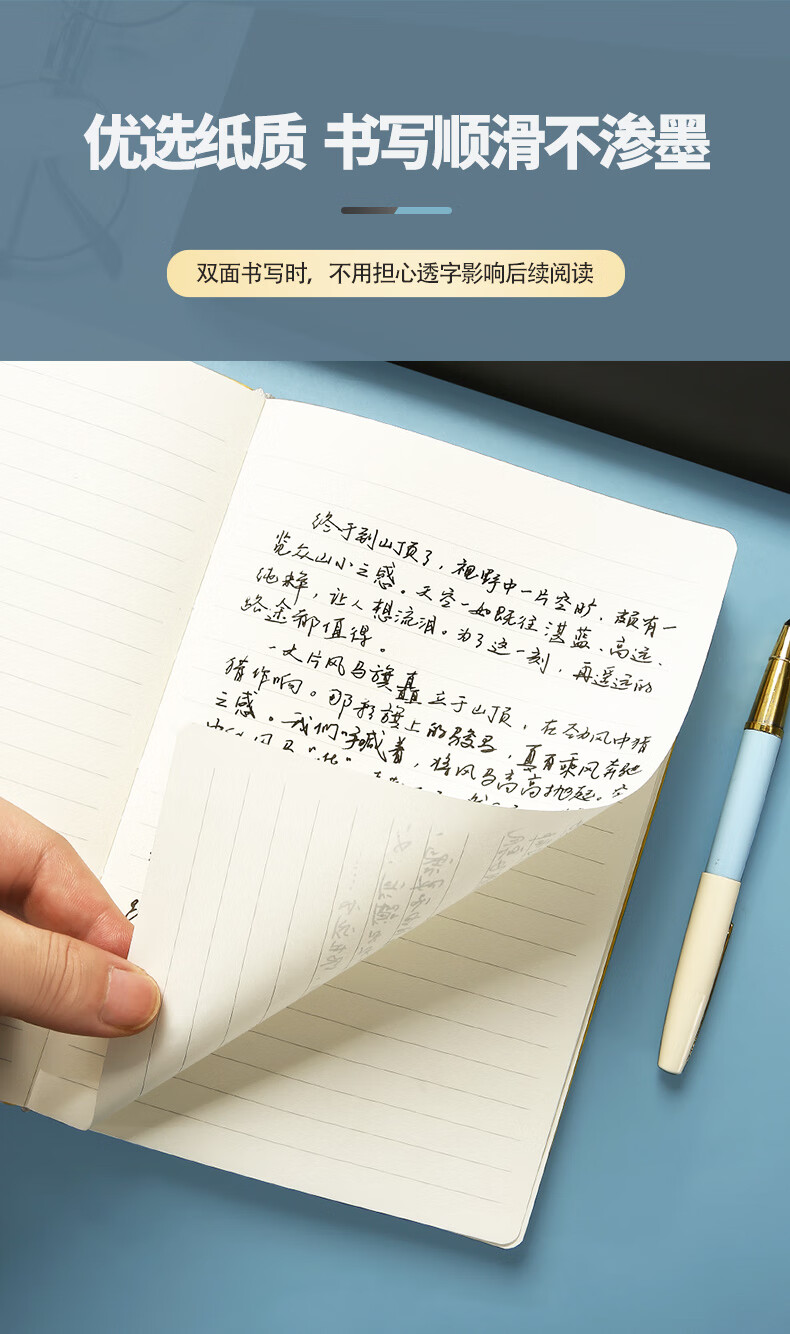 优选纸质 书写顺滑不渗墨
双面书写时，不用担心透字影响后续阅读
终于到山顶了，视野中一片空旷、颇有一
览众山小之感。天空一如既往湛蓝、高远、
纯粹，让人想流泪。为了这一刻，再遥远的
路途都值得。
一大片风马旗矗立于山顶，在劲风中猎
猎作响。那彩旗上的骏马，真有乘风奔驰
之感。我们呼喊着，将风马高高抛起。